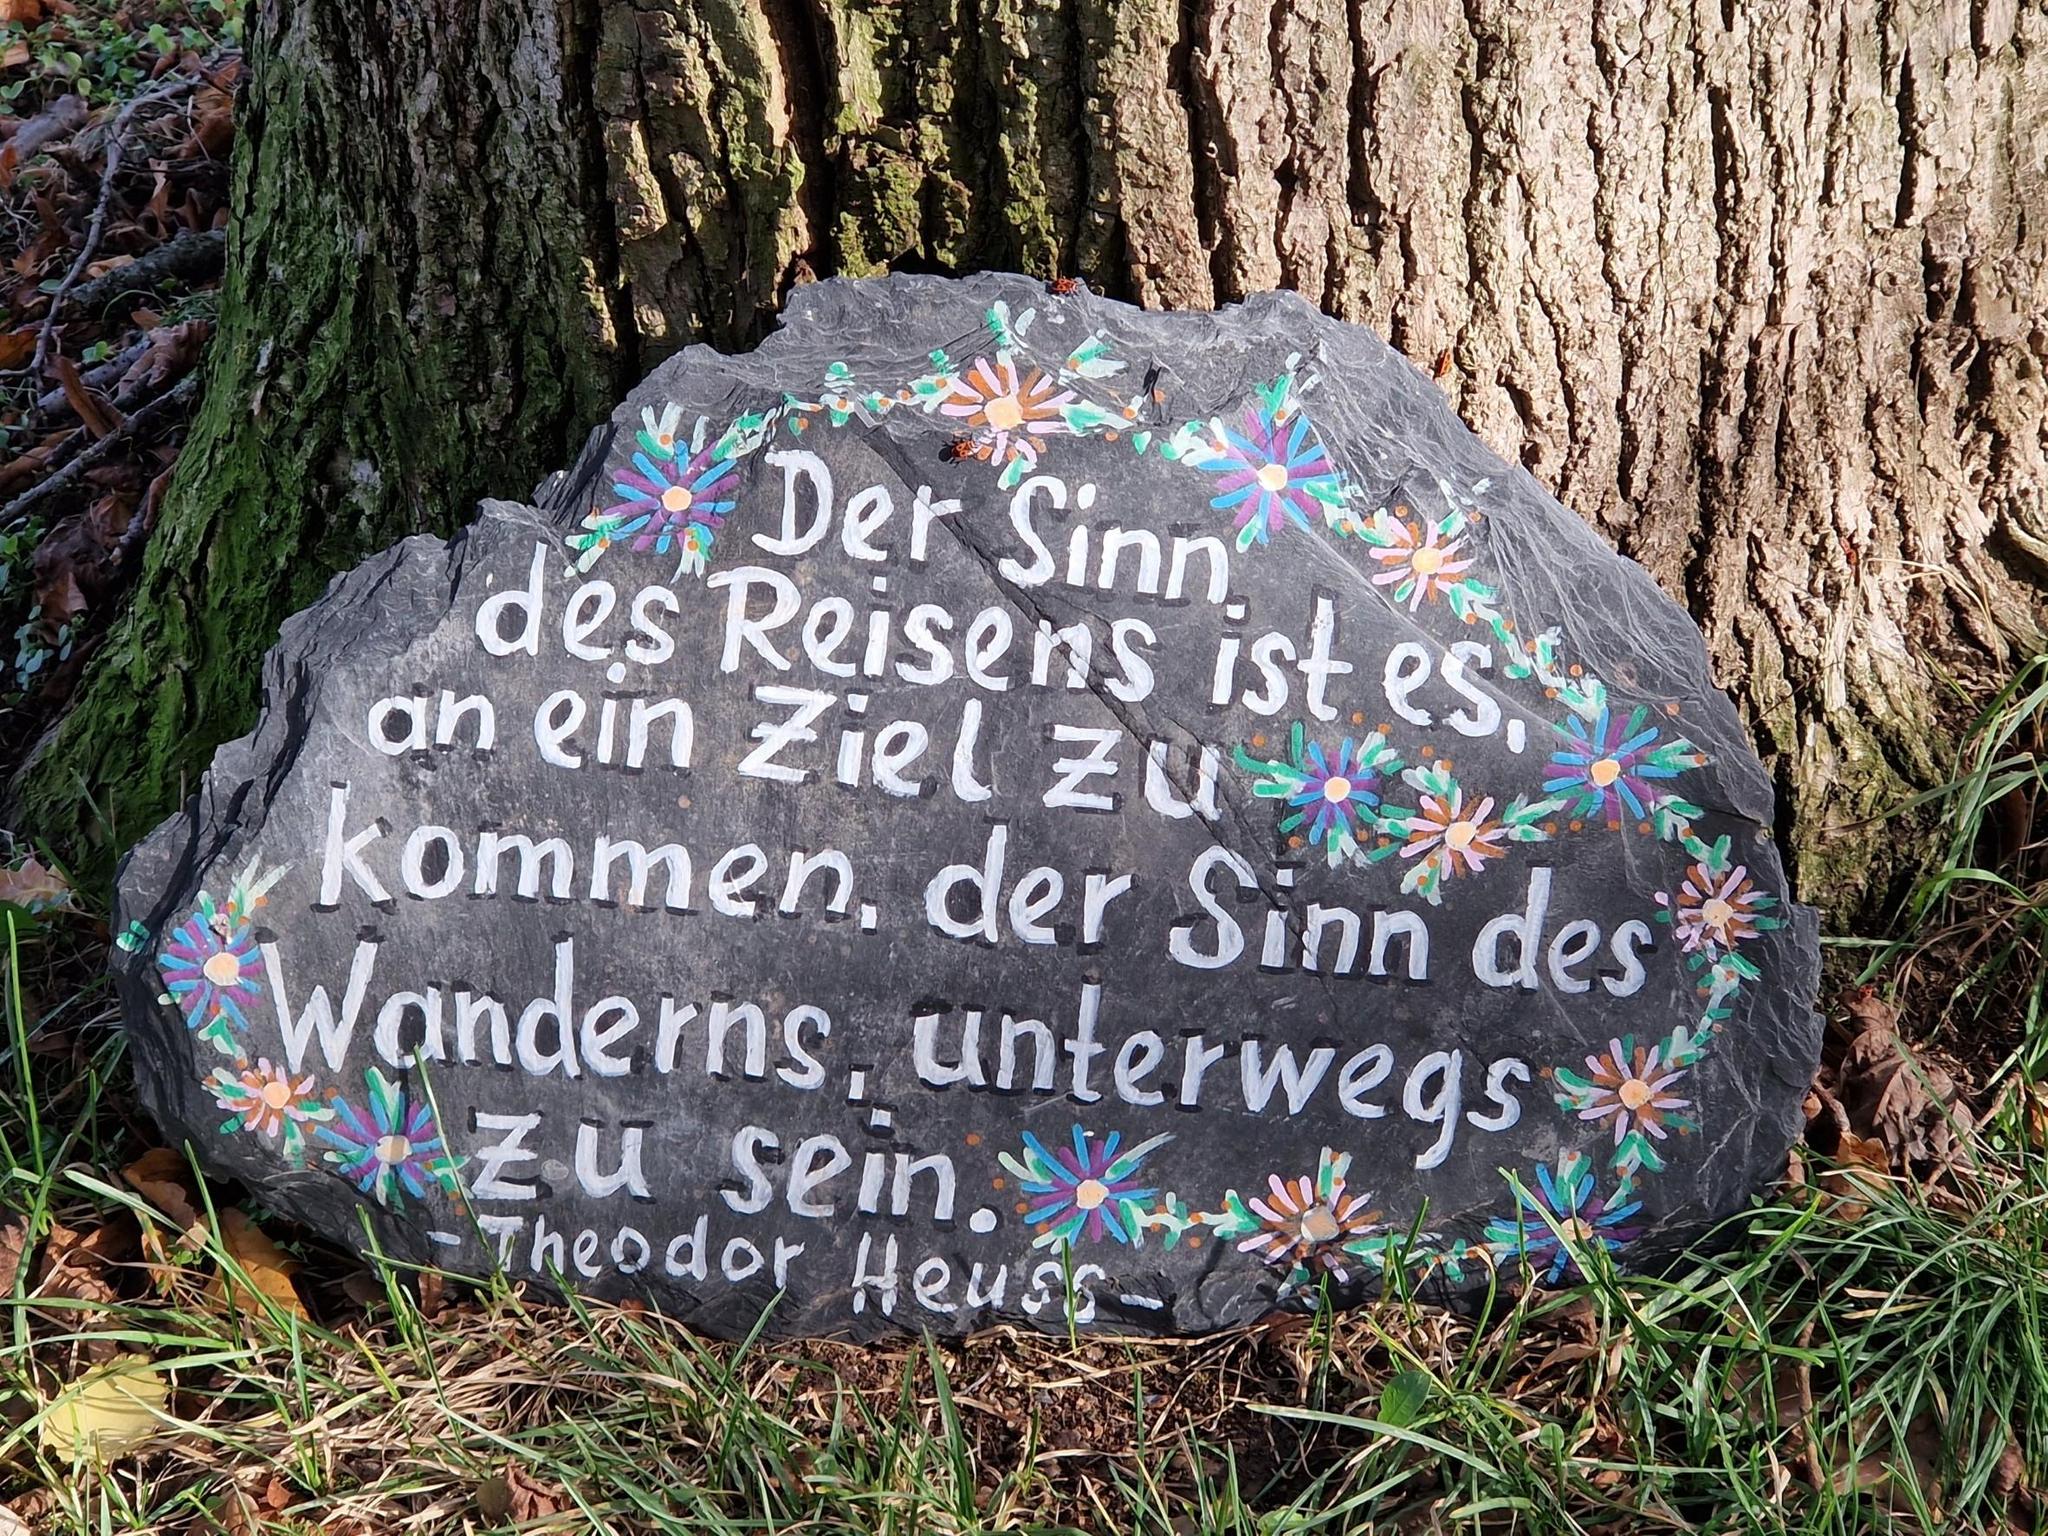 Der Sinn
des Reisens ist es,
an ein Ziel zu
kommen. der Sinn des
Wanderns, unterwegs
zu sein.
-Theodor Heuss-